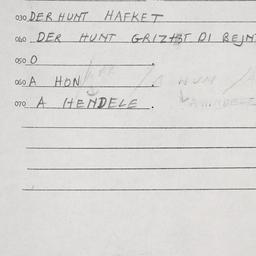 030 DER HUNT HAFKET
040 DER HUNT GRIZHET DI BEJN
050 O .
060 A HON .
070 A HENDELE .